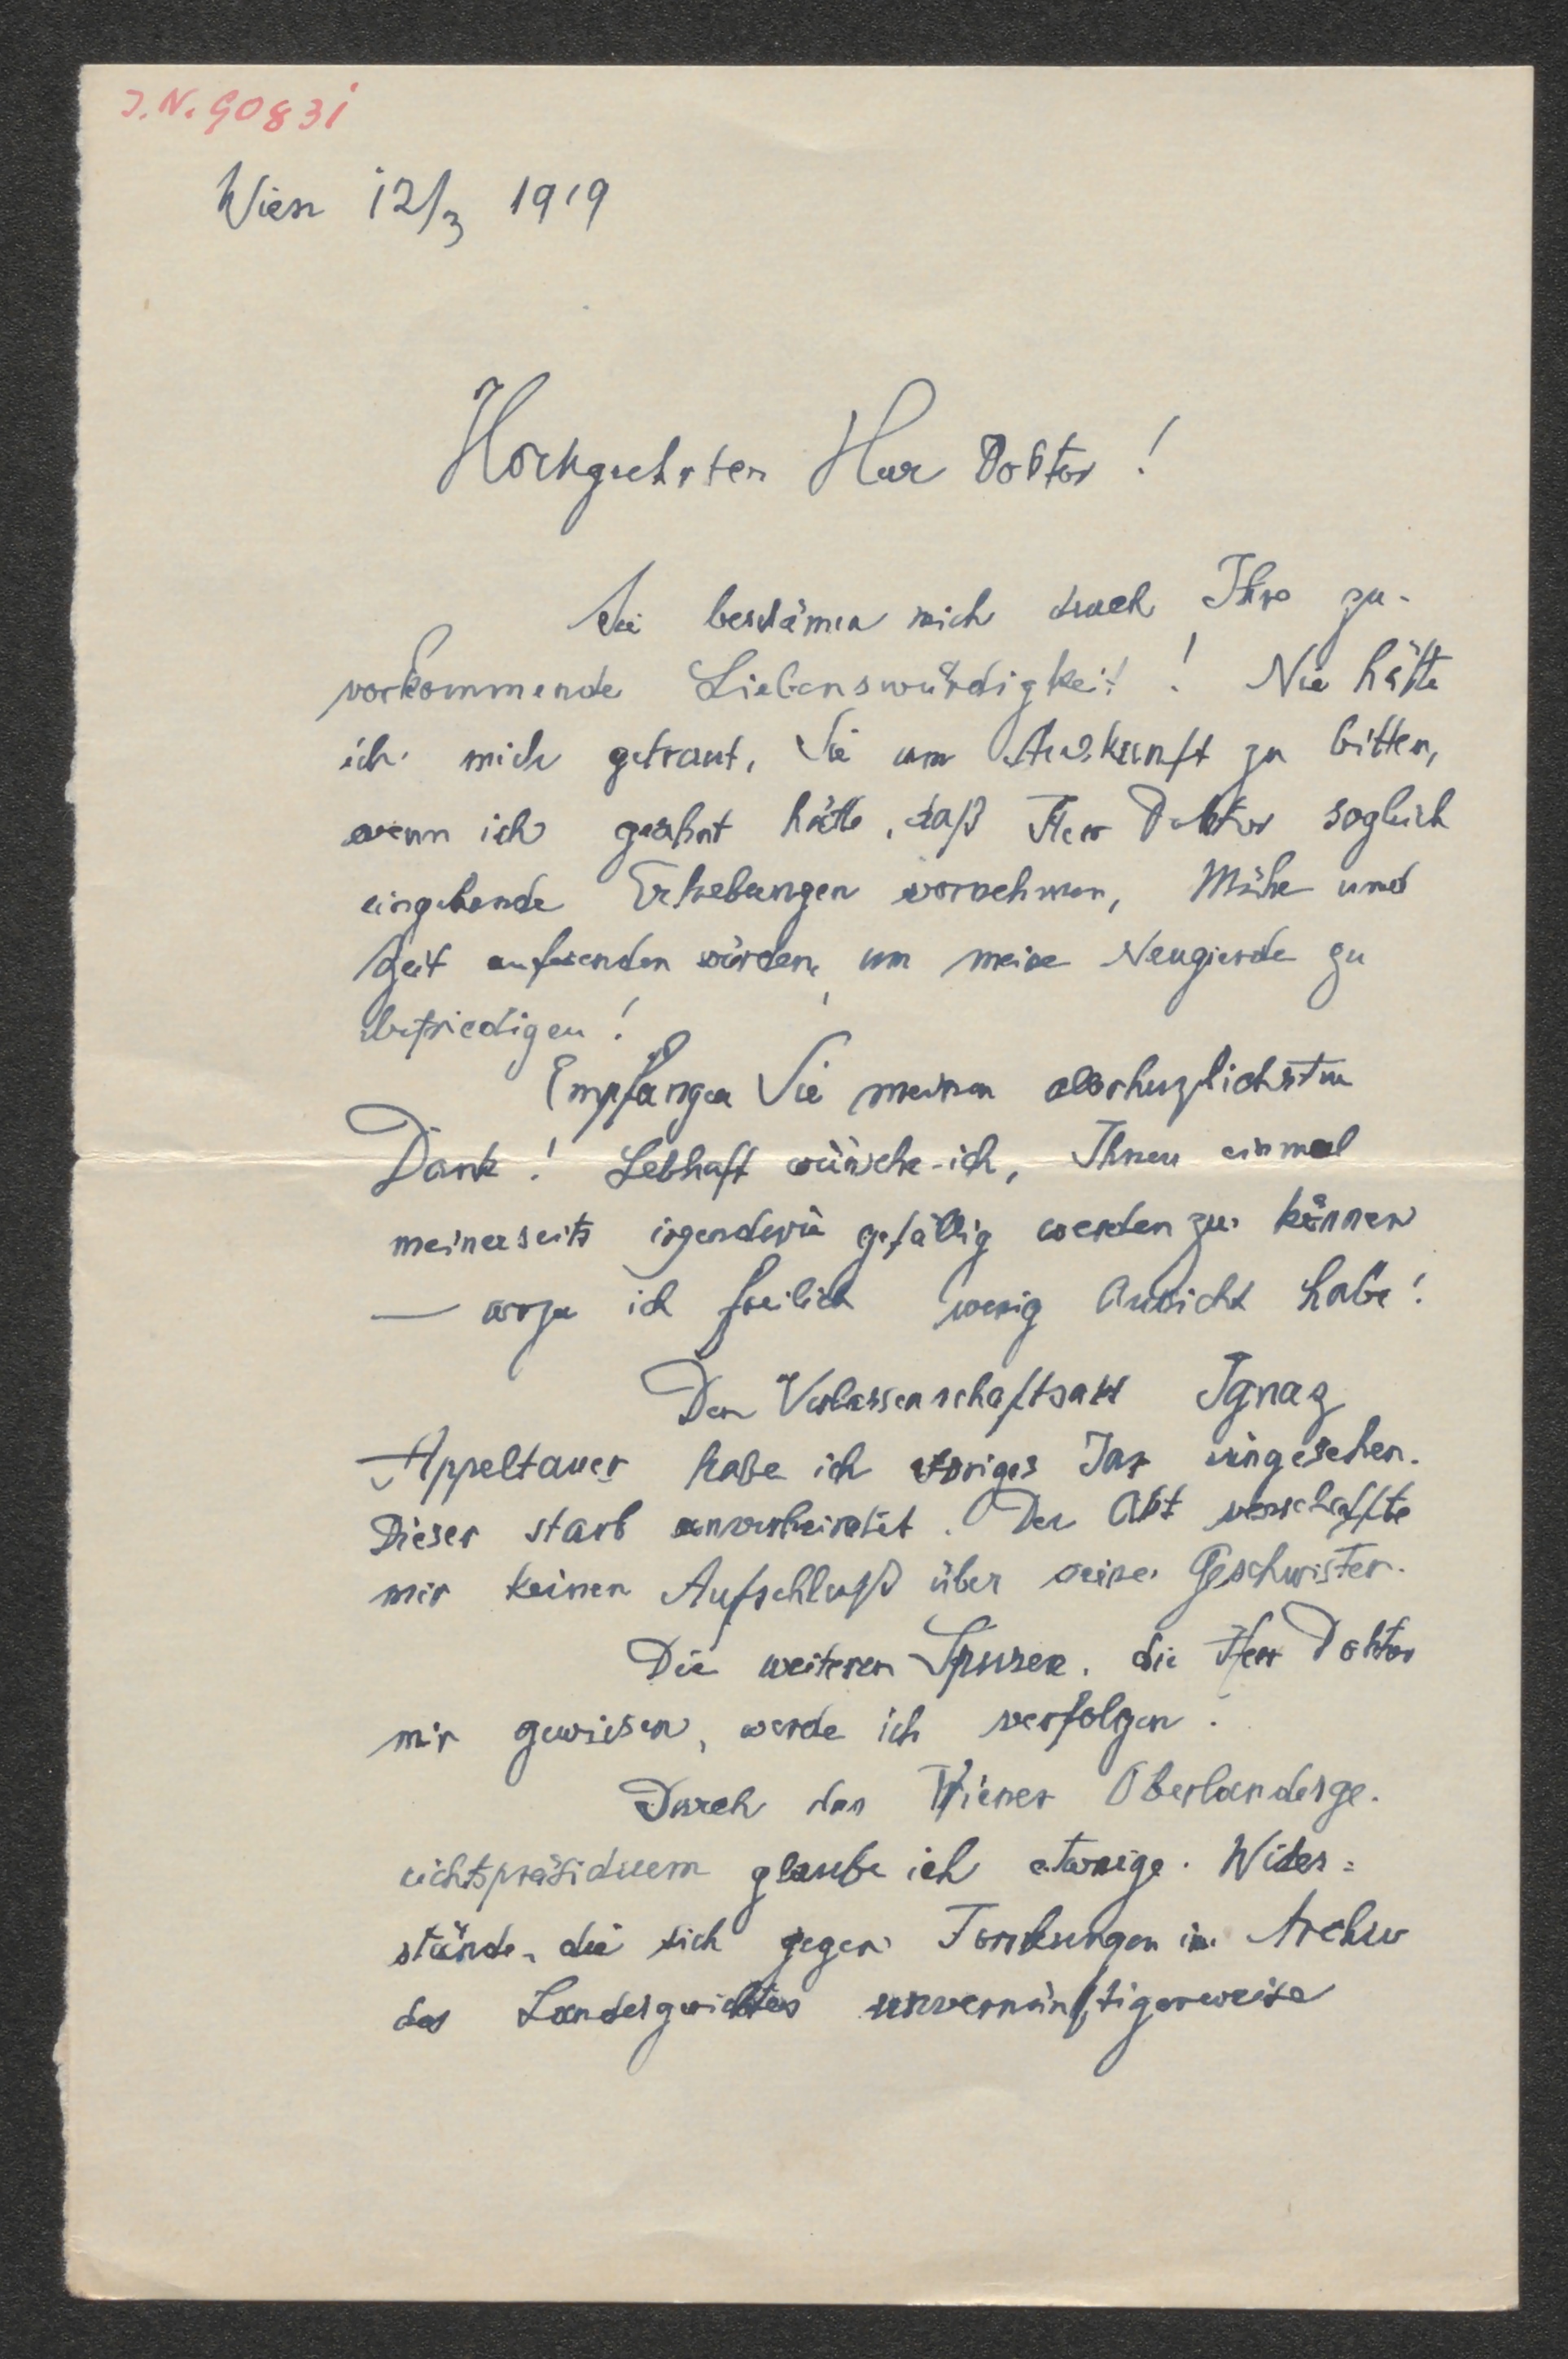 J.N. 90831
Wien 12/3 1919
Hochgeehrter Herr Doktor!
Sie beschämen mich durch Ihre zu-
vorkommende Liebenswürdigkeit! Nie hätte
ich mich getraut, Sie um Auskunft zu bitten,
wenn ich geahnt hätte, daß Herr Doktor sogleich
eingehende Erhebungen vornehmen, Mühe und
Zeit aufwenden würden, um meine Neugierde zu
befriedigen!
Empfangen Sie meinen allerherzlichsten
Dank! Lebhaft wünsche ich, Ihnen einmal
meinerseits irgendwie gefällig werden zu können
— wozu ich freilich wenig Aussicht habe!
Den Verlassenschaftsakt Ignaz
Appeltauer habe ich voriges Jar eingesehen.
Dieser starb unverheiratet. Der Akt verschaffte
mir keinen Aufschluß über seine Geschwister.
Die weiteren Spuren, die Herr Doktor
mir gewiesen, werde ich verfolgen.
Durch das Wiener Oberlandesge-
richtspräsidium glaube ich etwaige Wider=
stände, die sich gegen Forschungen im Archiv
des Landesgerichtes unvernünftigerweise